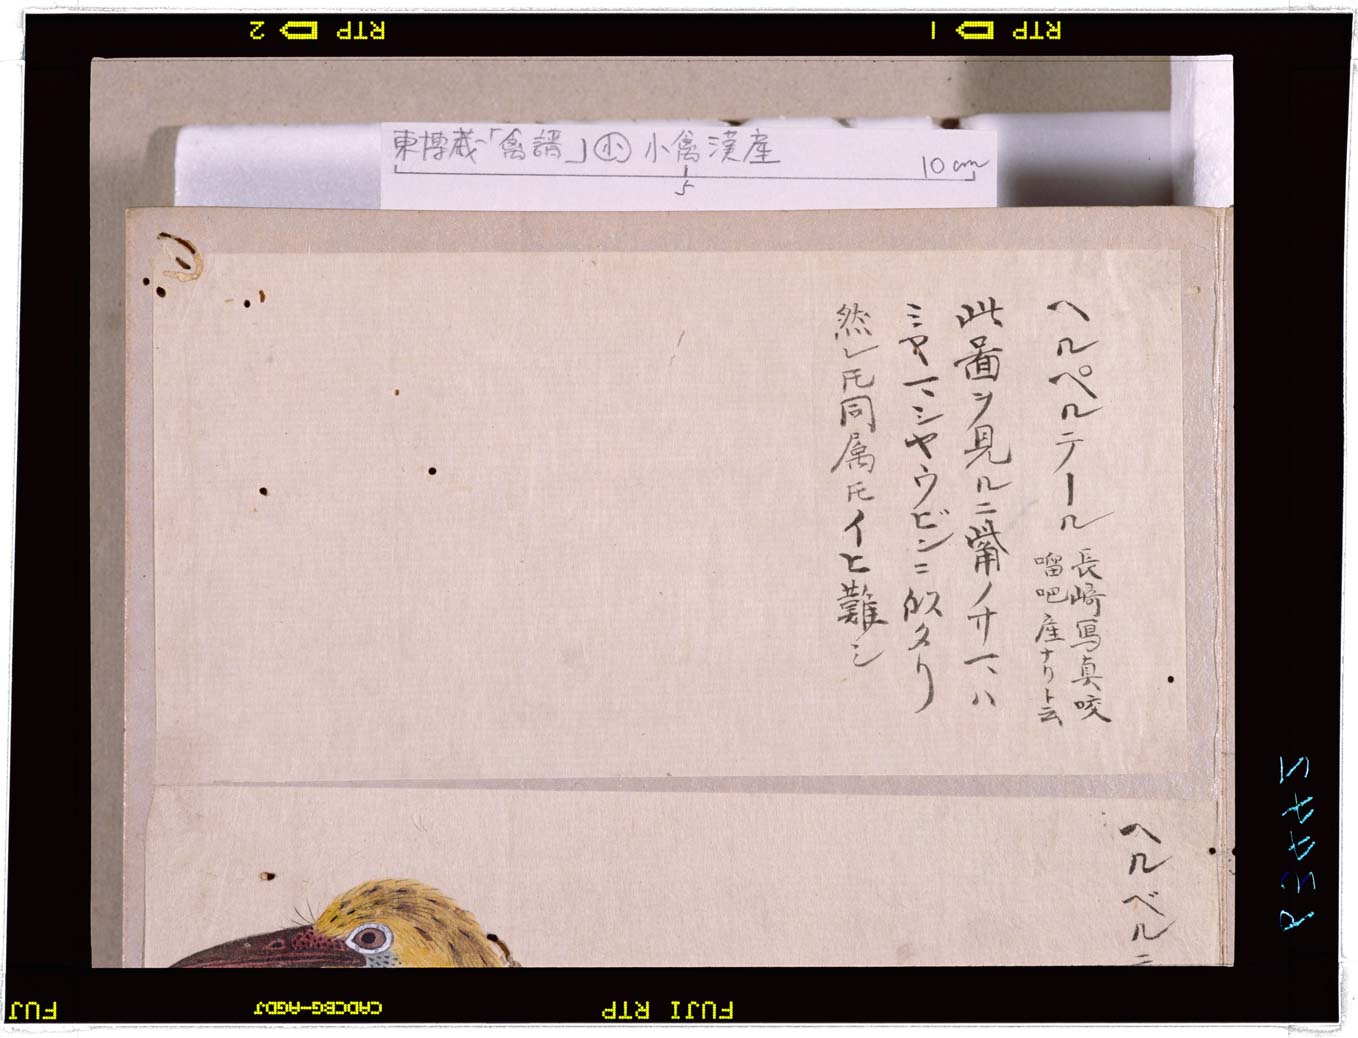 RTP 2
RTP 1
東博蔵「禽譜」㊥ 小禽漢産
5
10cm
ヘルペルテール
長崎寫真咬
𠺕吧産ナリト云
此圖ヲ見ルニ觜ノサマハ
ミヤマシヤウビンニ似タリ
然レ𪜈同属𪜈イヒ難シ
ヘルベル
FUJI RTP
CADCBG-AGDJ
FUJ